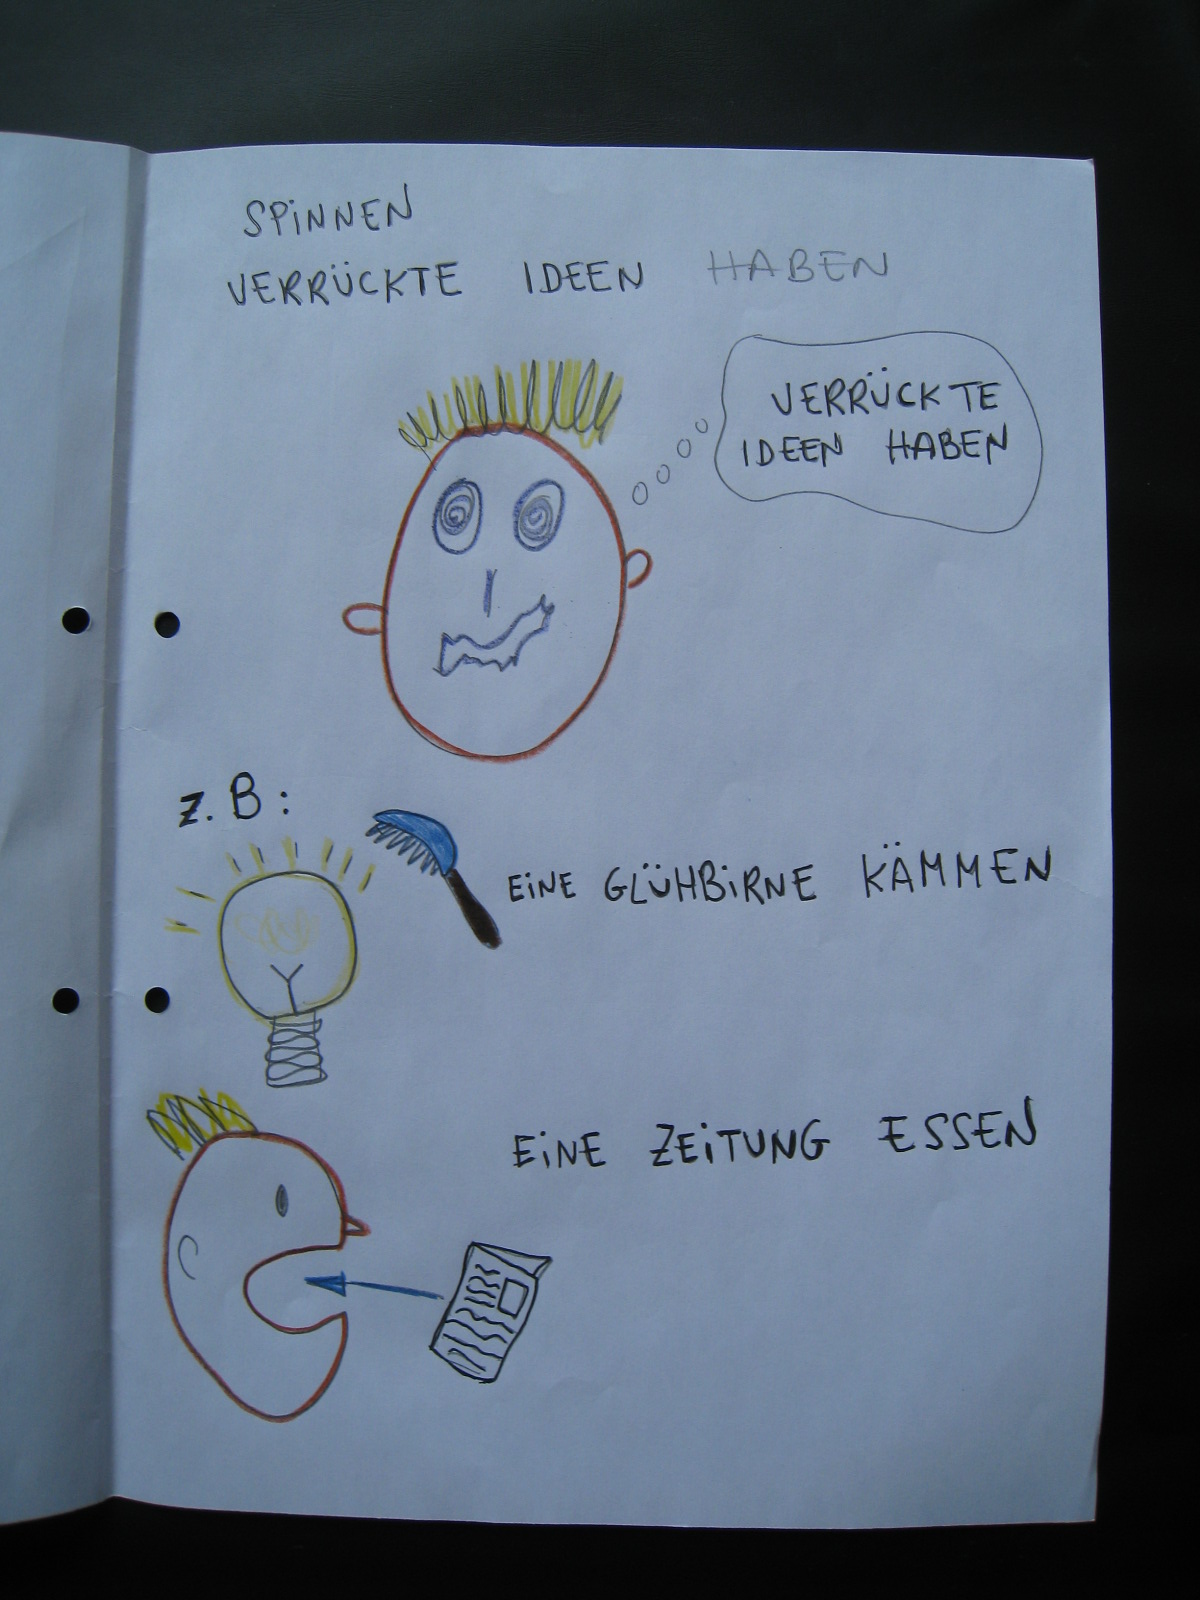 SPINNEN
VERRÜCKTE IDEEN HABEN
VERRÜCKTE
IDEEN HABEN
Z.B:
EINE GLÜHBIRNE KÄMMEN
EINE ZEITUNG ESSEN